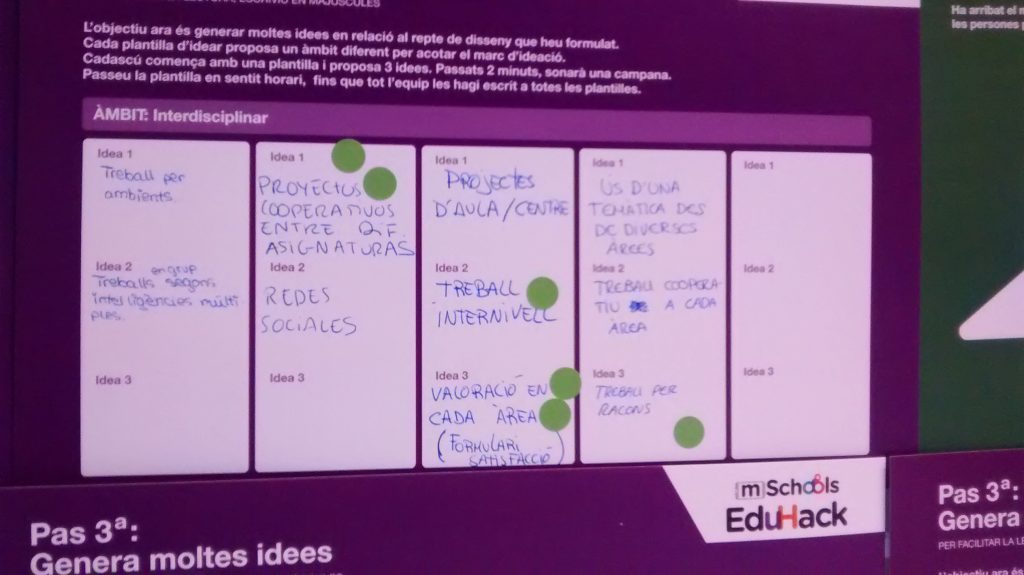 EN MAJÚSCULES
L'objectiu ara és generar moltes idees en relació al repte de disseny que heu formulat.
Cada plantilla d'idear proposa un àmbit diferent per acotar el marc d'ideació.
Cadascú comença amb una plantilla i proposa 3 idees. Passats 2 minuts, sonarà una campana.
Passeu la plantilla en sentit horari, fins que tot l'equip les hagi escrit a totes les plantilles.
ÀMBIT: Interdisciplinar
Idea 1
Treball per
ambients.
Idea 2
en grup
Treballs segons
intel·ligències múlti
ples.
Idea 3
Idea 1
PROYECTOS
COOPERATIVOS
ENTRE DIF.
ASIGNATURAS
Idea 2
REDES
SOCIALES
Idea 3
Idea 1
PROJECTES
D'AULA/CENTRE
Idea 2
TREBALL
INTERNIVELL
Idea 3
VALORACIÓ EN
CADA ÀREA
(FORMULARI
SATISFACCIÓ)
Idea 1
ÚS D'UNA
TEMÀTICA DES
DE DIVERSES
ÀREES
Idea 2
TREBALL COOPERA
TIU A CADA
ÀREA
Idea 3
TREBALL PER
RACONS
Idea 1
Idea 2
Idea 3
Pas 3ª:
Genera moltes idees
[m]Schools
EduHack
Ha arribat el
les persones
Pas 3ª:
Genera
PER FACILITAR LA